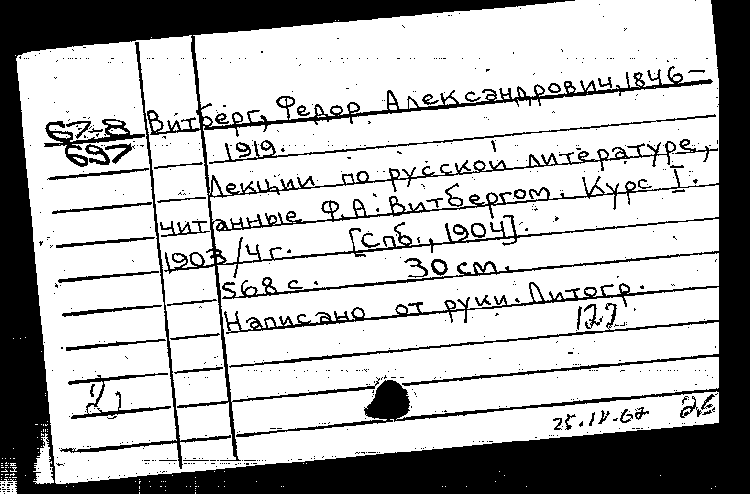 67-8 Витберг, Федор Александрович, 1846-
697 1919.
Лекции по русской литературе,
читанные Ф.А. Витбергом. Курс I.
1903/4 г. [Спб., 1904].
568 с. 30 см.
Написано от руки. Литогр.
122
25.IV.67 26